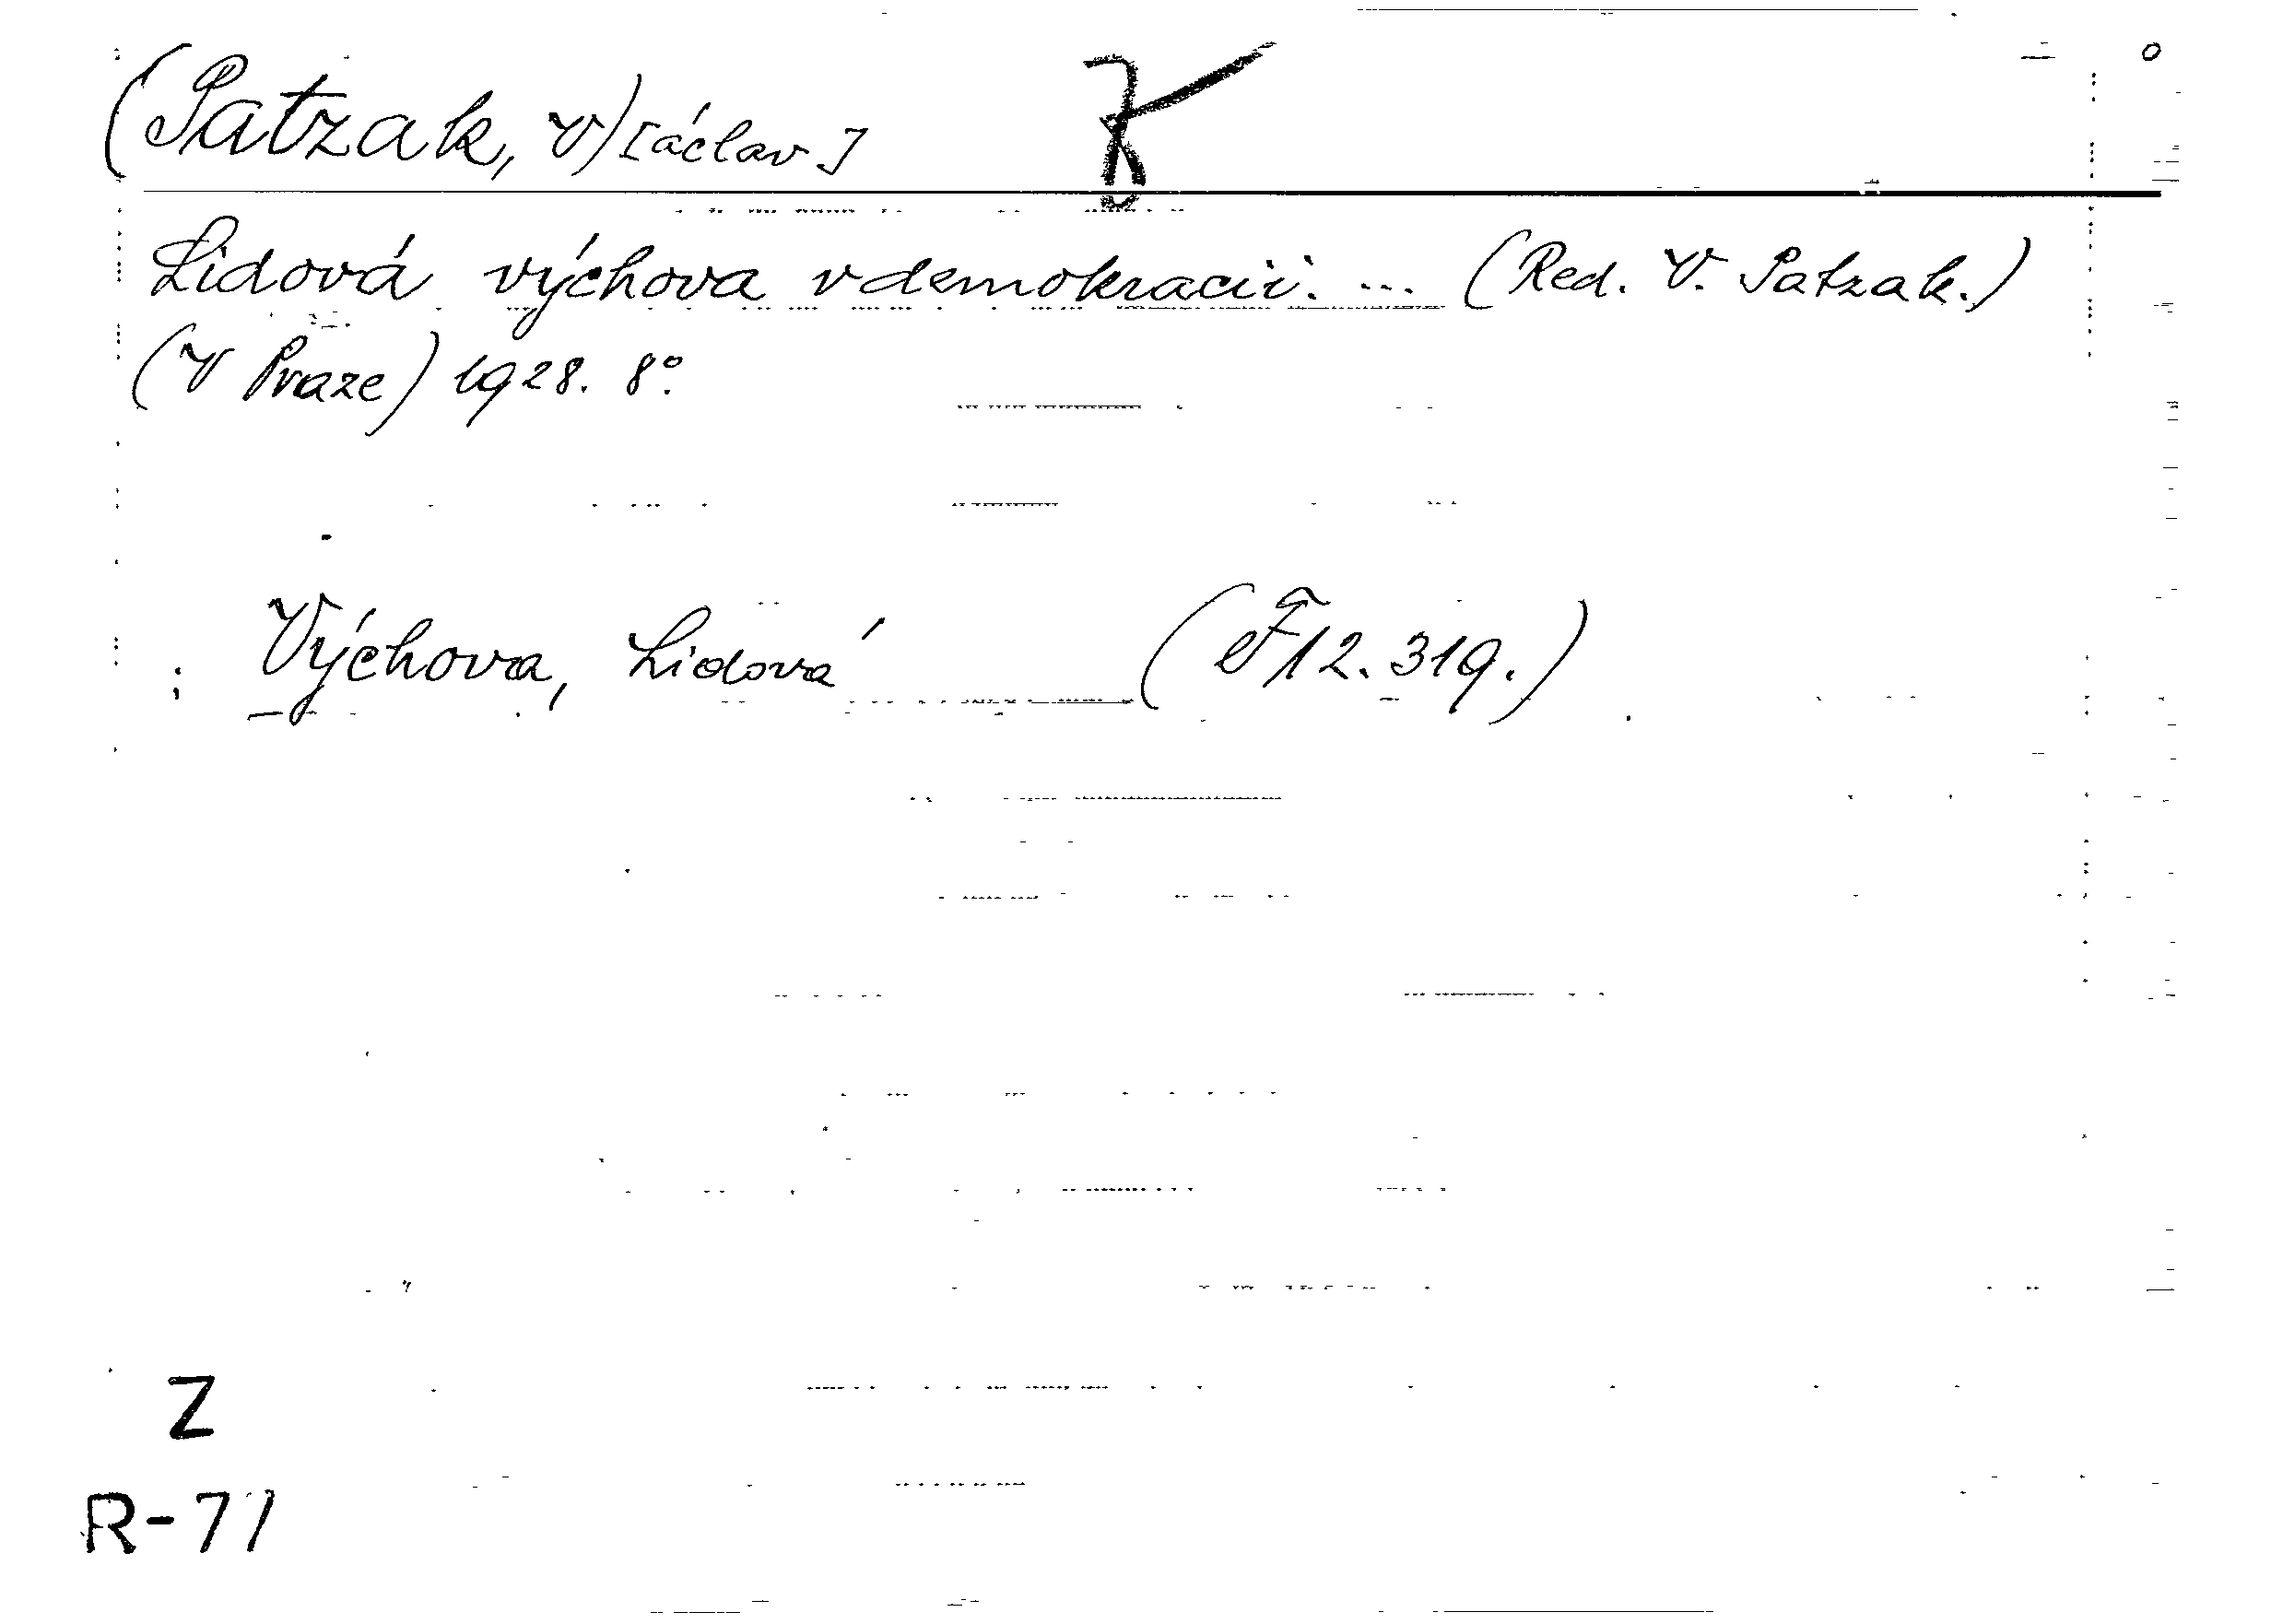 (Patzak, V)[áclav]
Lidová výchova v demokracii. ... (Red. V. Patzak.)
(V Praze) 1928. 8°.
Výchova, Lidová (F 12.319.)
Z
R-71